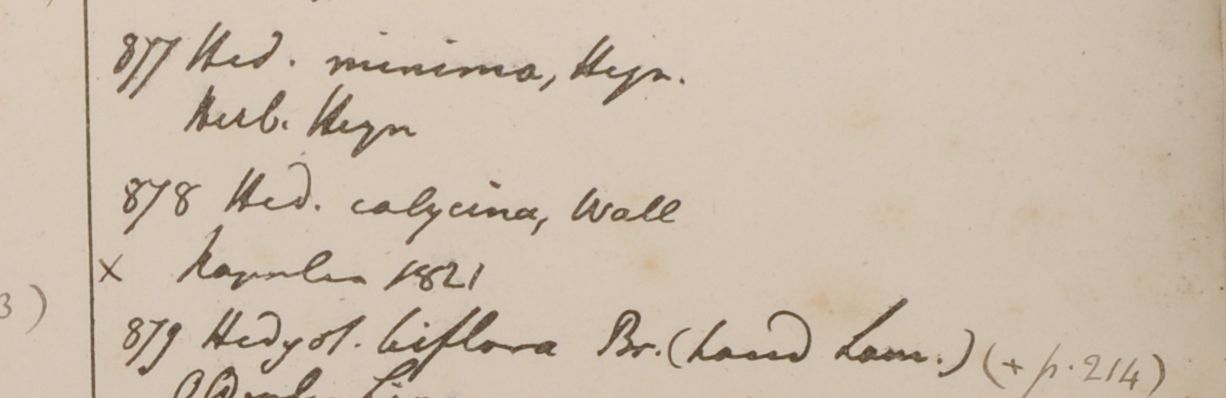 877 Hed. minima, Heyn.
Herb. Heyn
878 Hed. calycina, Wall
x Napalia 1821
879 Hedyot. biflora Br. (haud Lam.) (+ p. 214)
3)